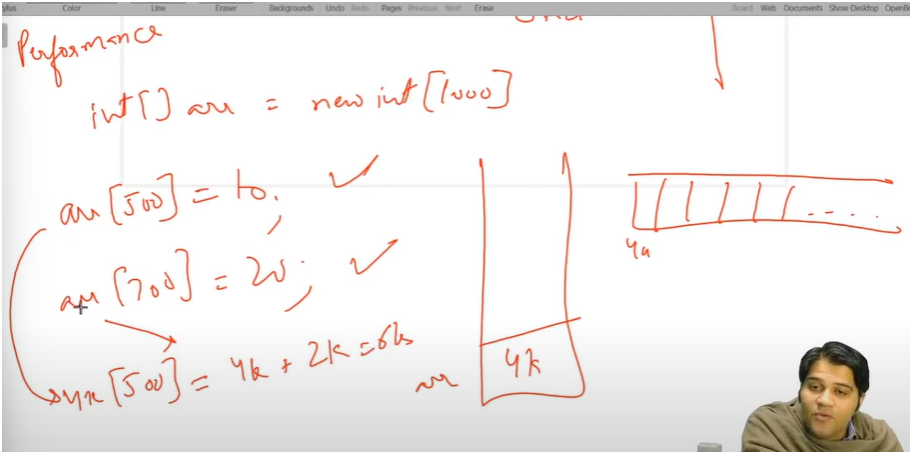 Stylus Color Line Eraser Backgrounds Undo Redo Pages Previous Next Erase Board Web Documents Show Desktop OpenBo
Performance
int[] arr = new int[1000]
arr[500] = 10;
arr[700] = 20;
[500] = 4k + 2k = 6k
arr
4k
4k